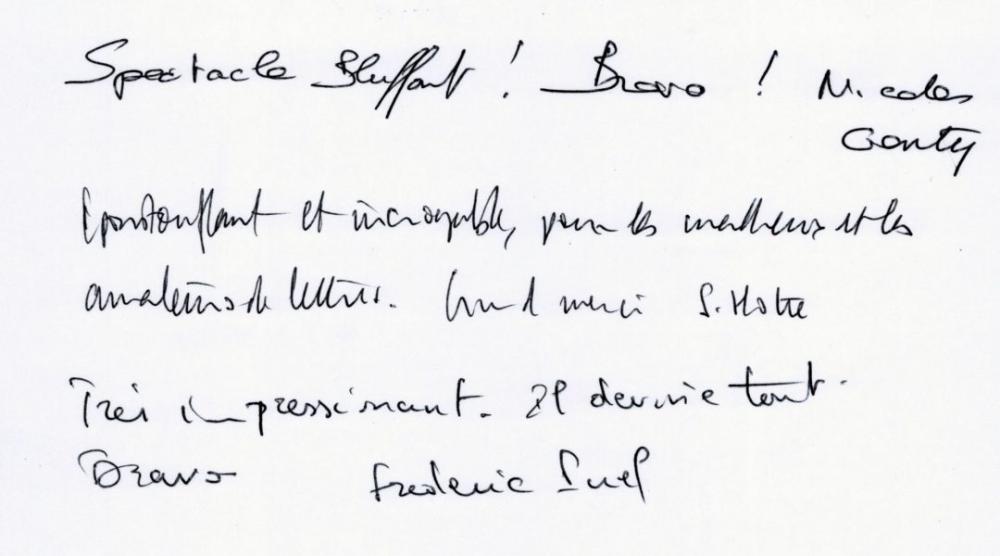 Spectacle Bluffant ! Bravo ! Nicolas
Gonty
Epoustouflant et incroyable, pour les matheux et les
amateurs de lettres. Grand merci S. Motte
Très impressionnant. Il devine tout.
Bravo Frederic